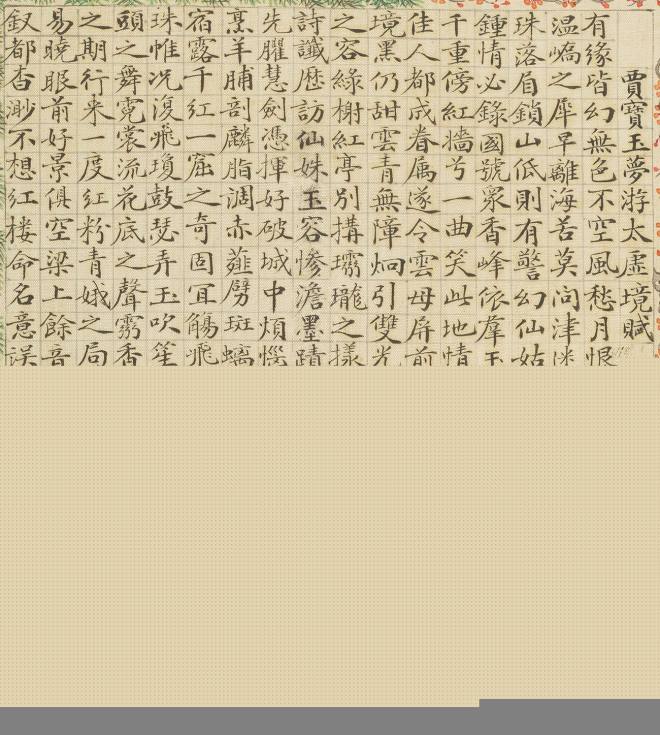 賈寶玉夢游太虛境賦
有緣皆幻無色不空風愁月恨
温嶠之犀早離海苦莫问津迷
珠落眉鎖山低則有警幻仙姑
鍾情必錄國號衆香峰依羣玉
千重傍紅墻兮一曲笑此地情
佳人都成眷属遂令雲母屏前
境黑仍甜雲青無障炯引雙光
之容綠榭紅亭別搆瓏之様
詩讖歴訪仙姝玉容惨澹墨蹟
先臞慧劍憑揮好破城中煩惱
烹羊脯剖麟脂調赤薤劈斑螭
宿露千紅一窟之奇固宜觴飛
珠惟况復飛瓊鼓瑟弄玉吹笙
頭之舞霓裳流花底之聲霧香
之期行来一度红粉青娥之局
易曉眼前好景俱空梁上餘音
釵都杳渺不想紅楼命名意误